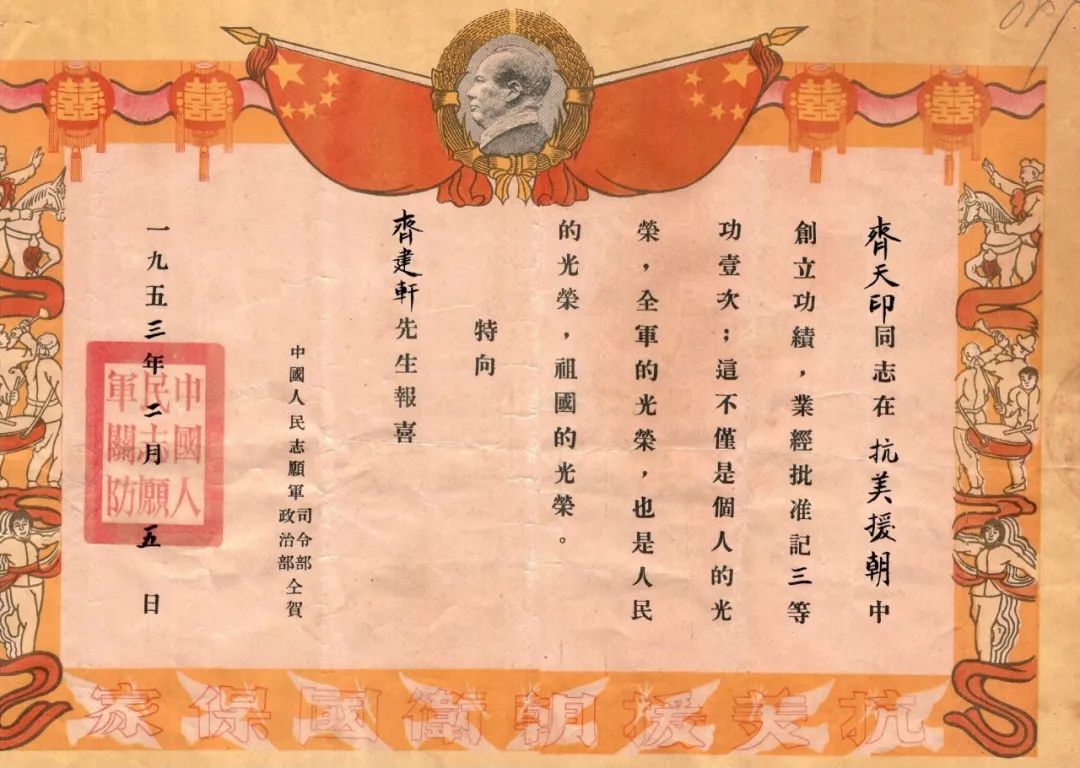 齊天印同志在抗美援朝中
創立功績，業經批准記三等
功壹次；這不僅是個人的光
榮，全軍的光榮，也是人民
的光榮，祖國的光榮。
特向
齊建軒先生報喜
中國人民志願軍司令部政治部仝賀
一九五三年二月五日
中國人民志願軍關防
抗美援朝衛國保家
囍
囍
囍
囍